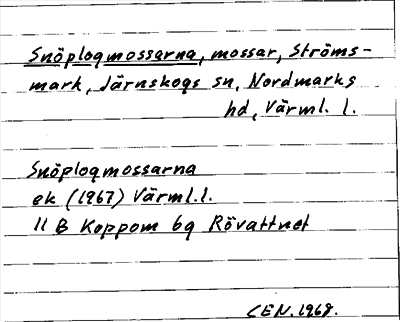 Snöplogmossarna, mossar, Ströms-
mark, Järnskogs sn, Nordmarks
hd, Värml. l.
Snöplogmossarna
ek (1967) Värml.l.
11 B Koppom 6g Rövattnet
CEN. 1968.